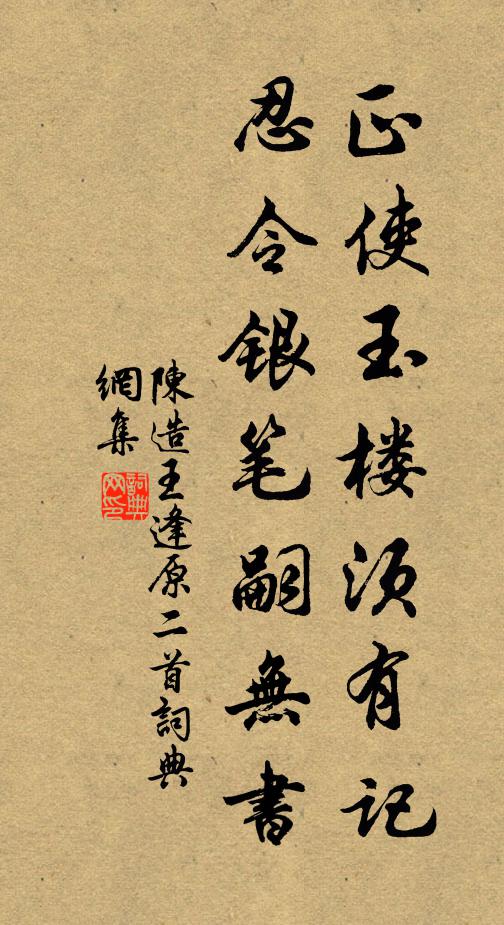 正使玉楼须有记
忍令银笔嗣無書
陳造王逢原二首詞典
網集
詞典
网印